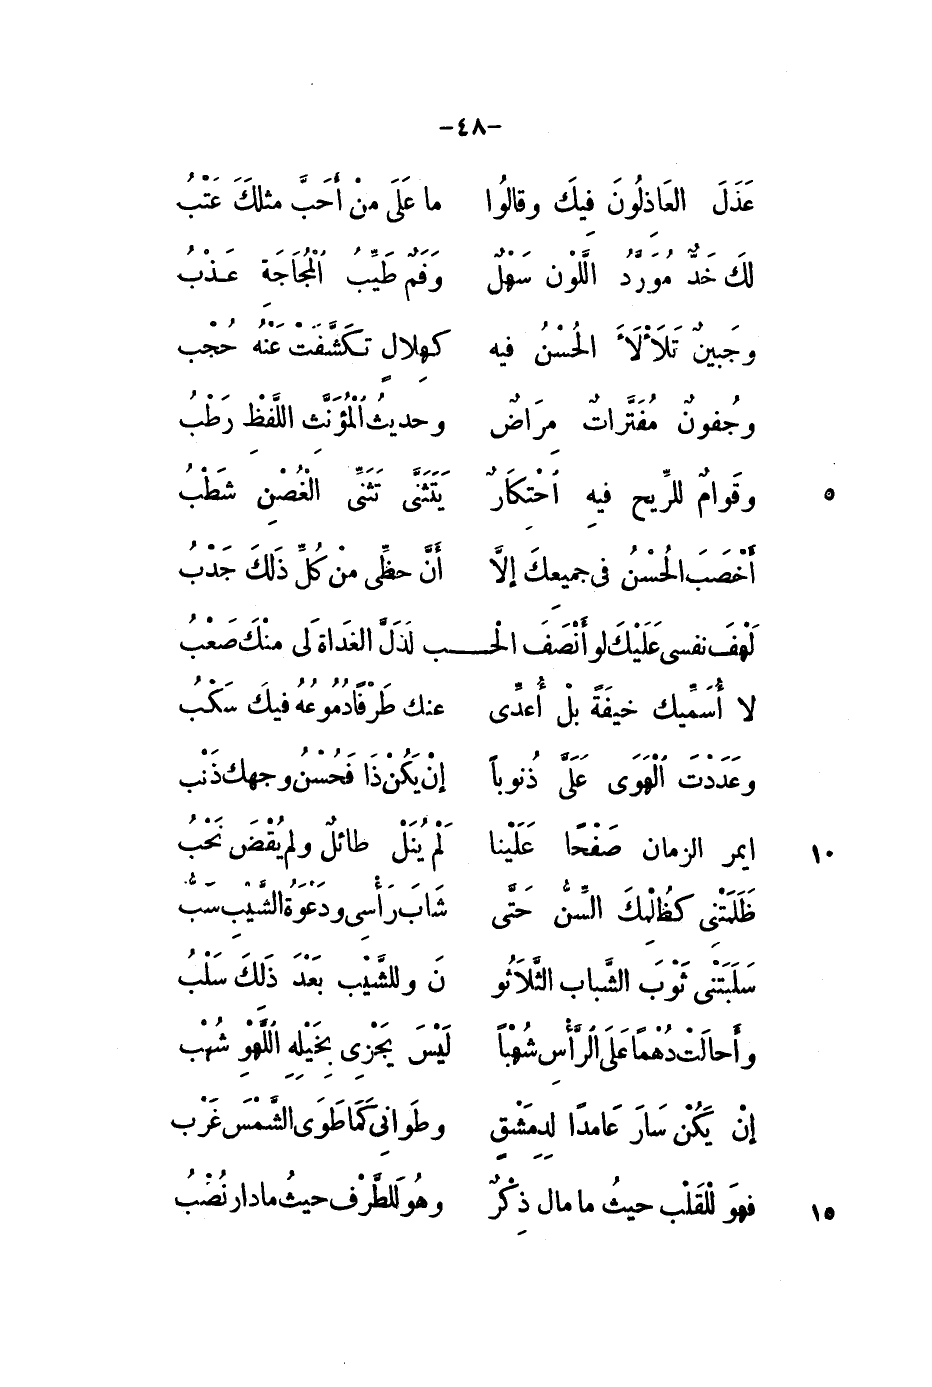 -٤٨-
عَذَلَ العَاذِلُونَ فِيكَ وقالُوا ما عَلَى مَنْ أَحَبَّ مثلكَ عَتْبُ
لكَ خَدٌّ مُوَرَّدُ اللَّوْنِ سَهْلٌ وَفَمٌ طَيِّبُ الْمُجَاجَةِ عَذْبُ
وجَبينٌ تَلَأْلَأَ الحُسْنُ فيه كهِلالٍ تكَشَّفَتْ عَنْهُ حُجْبُ
وجُفونٌ مُفَتَّراتٌ مِرَاضٌ وحديثُ الْمُؤَنَّثِ اللَّفْظِ رَطْبُ
٥ وقَوامٌ للرِّيحِ فيهِ احْتِكَارٌ يَتَثَنَّى تَثَنِّىَ الْغُصْنِ شَطْبُ
أَخْصَبَ الحُسْنُ فى جميعِكَ إلاَّ أَنَّ حظِّى منْ كُلِّ ذَلكَ جَدْبُ
لَهْفَ نفسى عَلَيْكَ لو أَنْصَفَ الْحــب لَذَلَّ الغَدَاةَ لى منْكَ صَعْبُ
لا أُسَمِّيك خيفَةً بلْ أُعدِّى عنك طَرْفًا دُمُوعُهُ فيكَ سَكْبُ
وعَدَدْتَ الْهَوَى عَلَىَّ ذُنوباً إنْ يكُنْ ذَا فَحُسْنُ وجهك ذَنْبُ
١٠ ايمر الزمان صَفْحًا عَلَيْنا لَمْ يُنَلْ طائلٌ ولم يُقْضَ نَحْبُ
ظَلَمَتْنى كظُلْمِكَ السِّنُّ حَتَّى شَابَ رَأْسى ودَعْوَةُ الشَّيْبِ سَبُّ
سَلَبَتْنى ثَوْبَ الشَّبابِ الثَّلَاثُو نَ وللشَّيْبِ بَعْدَ ذَلكَ سَلْبُ
وأَحالَتْ دهْمًا عَلَى الرَّأْسِ شُهْبًا لَيْسَ يَجْزِى بِخَيْلِهِ اللَّهْوِ شُهْبُ
إنْ يَكُنْ سَارَ عَامدًا لِدِمَشْقٍ وطَوانِى كَمَا طَوَى الشَّمْسَ غَرْبُ
١٥ فهوَ لْلقَلْبِ حيثُ ما مال ذِكْرٌ وهُوَ للطَّرْفِ حيثُ ما دار نُصْبُ